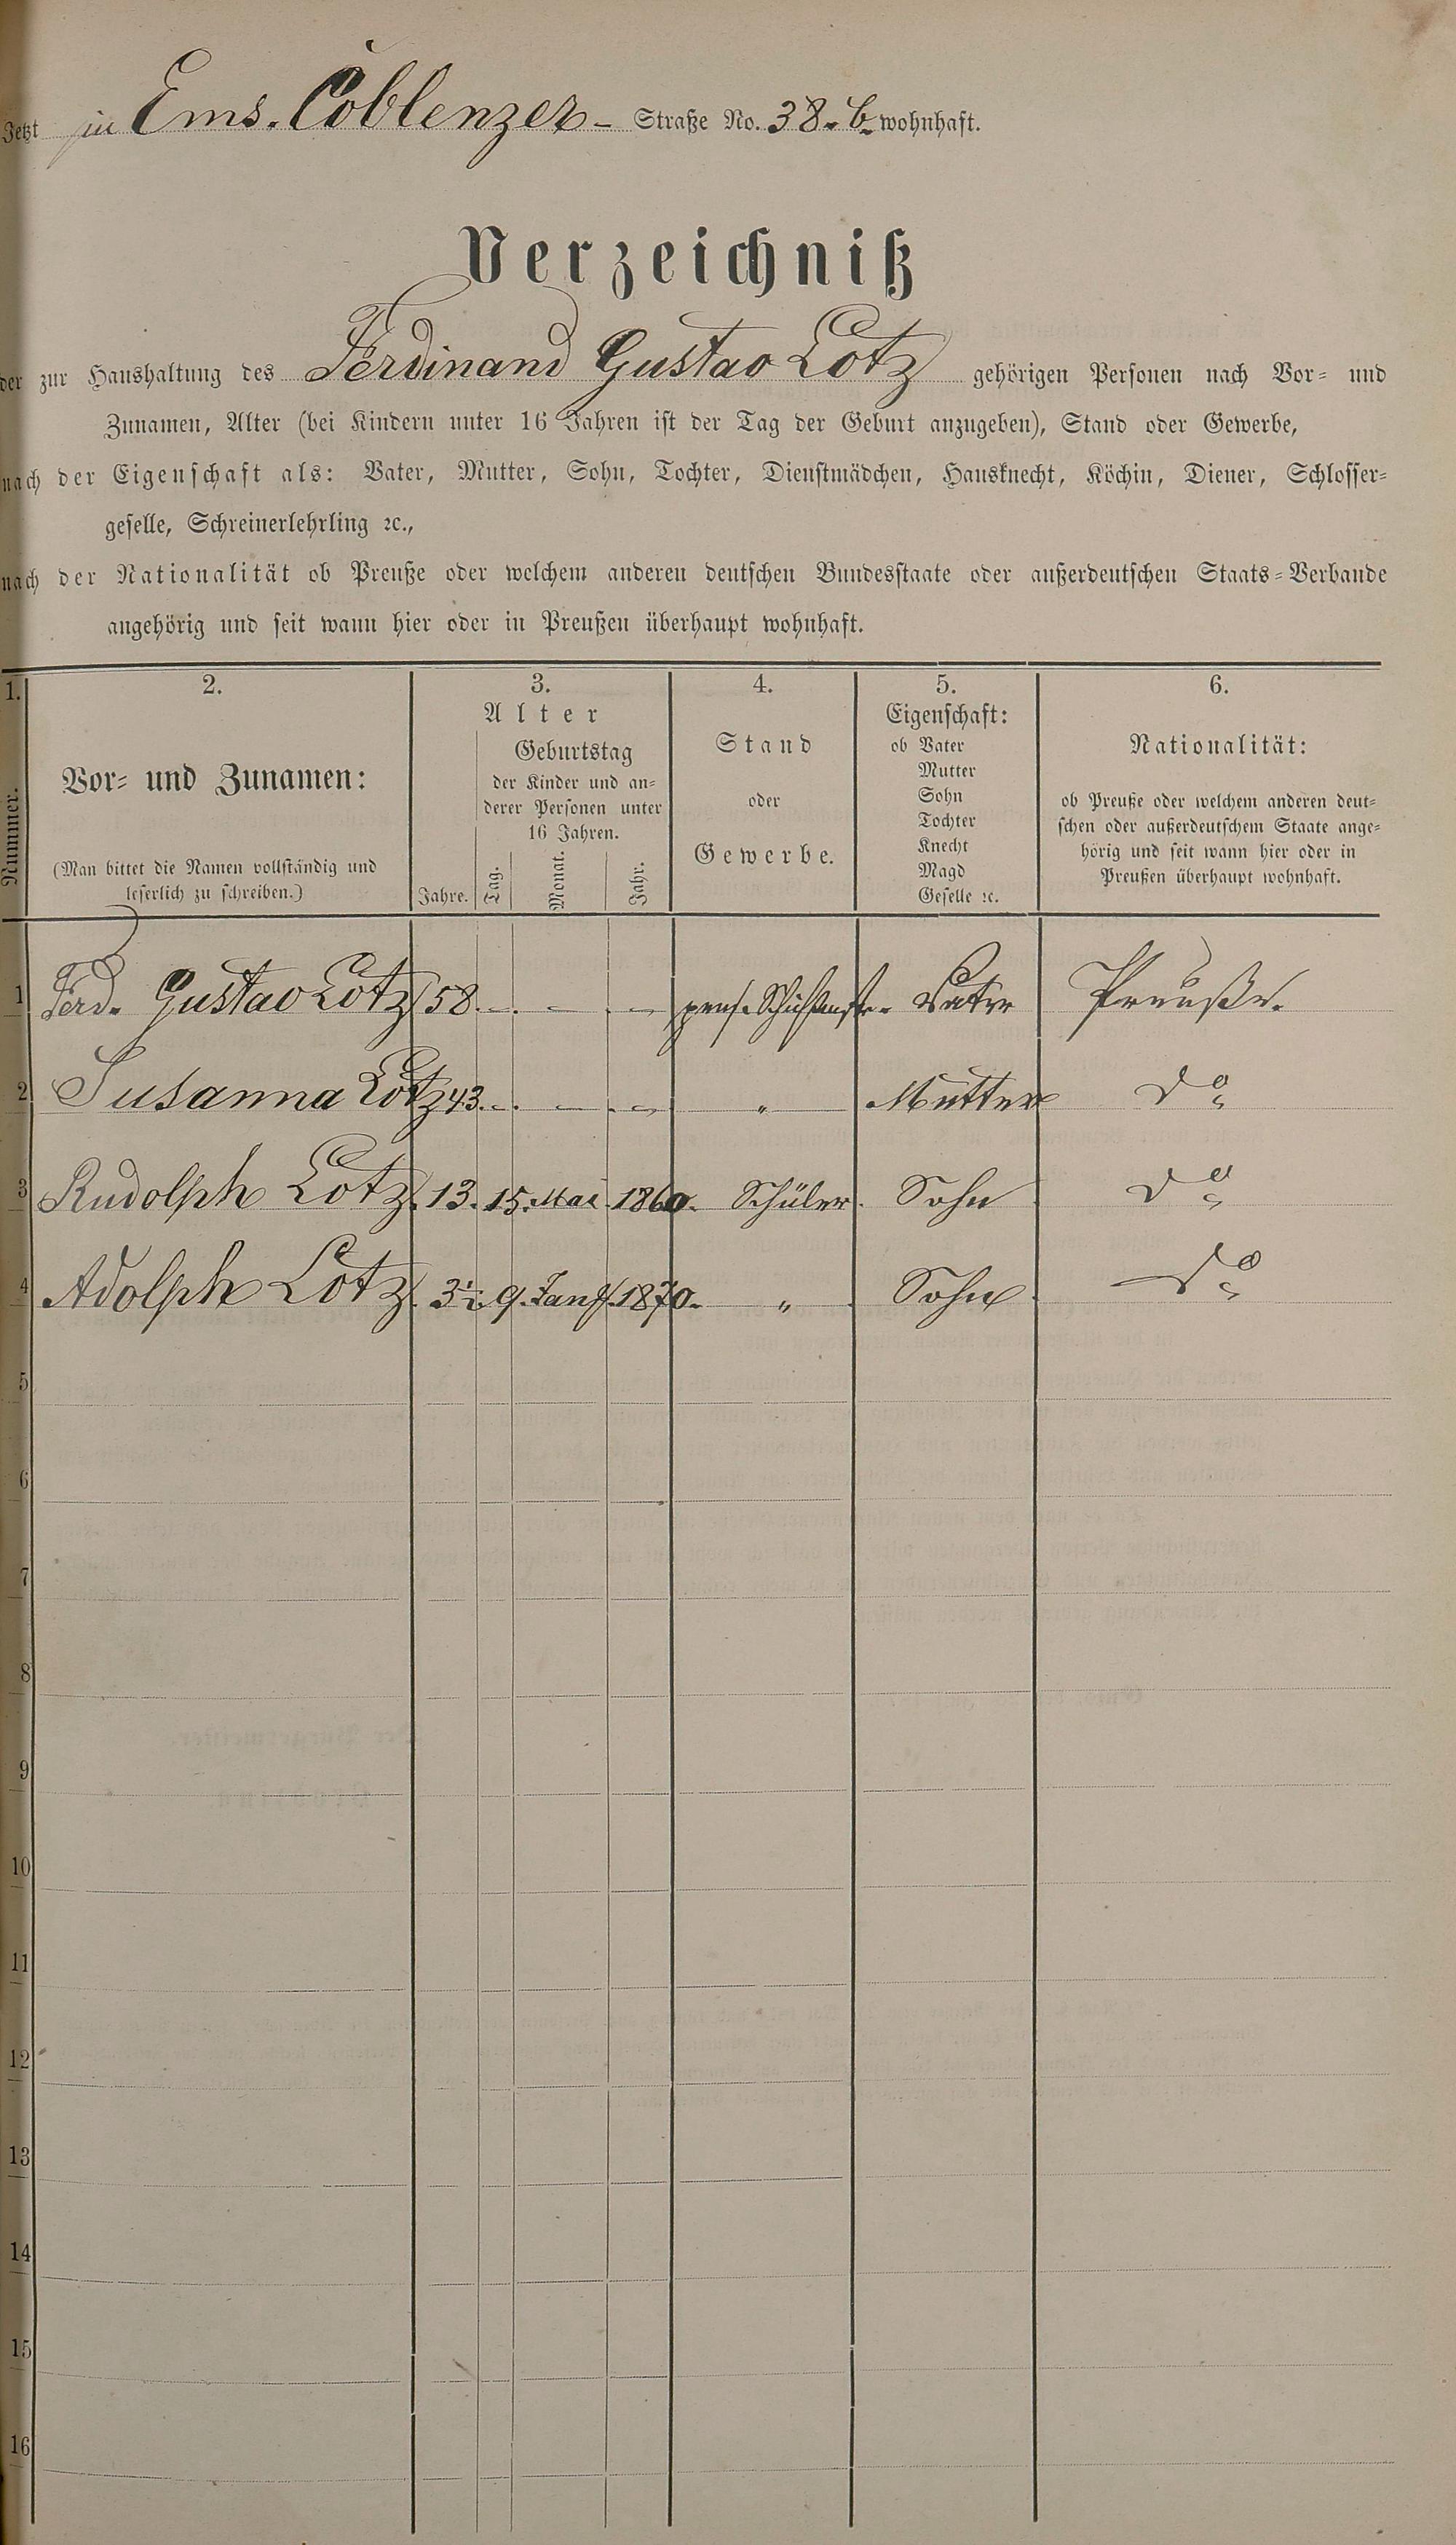 Jetzt in Ems. Coblenzer- Straße No. 38. b. wohnhaft.
Verzeichniß
der zur Haushaltung des Ferdinand Gustav Lotz gehörigen Personen nach Vor- und
Zunamen, Alter (bei Kindern unter 16 Jahren ist der Tag der Geburt anzugeben), Stand oder Gewerbe,
nach der Eigenschaft als: Vater, Mutter, Sohn, Tochter, Dienstmädchen, Hausknecht, Köchin, Diener, Schlosser-
geselle, Schreinerlehrling ꝛc.,
nach der Nationalität ob Preuße oder welchem anderen deutschen Bundesstaate oder außerdeutschen Staats-Verbande
angehörig und seit wann hier oder in Preußen überhaupt wohnhaft.
1. 2. 3. 4. 5. 6.
Nummer.
Vor- und Zunamen:
(Man bittet die Namen vollständig und
leserlich zu schreiben.)
Alter
Jahre.
Geburtstag
der Kinder und an-
derer Personen unter
16 Jahren.
Tag. Monat. Jahr.
Stand
oder
Gewerbe.
Eigenschaft:
ob Vater
Mutter
Sohn
Tochter
Knecht
Magd
Geselle ꝛc.
Nationalität:
ob Preuße oder welchem anderen deut-
schen oder außerdeutschem Staate ange-
hörig und seit wann hier oder in
Preußen überhaupt wohnhaft.
1 Ferd. Gustav Lotz 58. — — — pens. Vater Preuße.
2 Susanna Lotz 43. — — — " Mutter do
3 Rudolph Lotz. 13. 15. Mai 1860. Schüler. Sohn do
4 Adolph Lotz. 3½ 9. 1870. " Sohn do
5
6
7
8
9
10
11
12
13
14
15
16